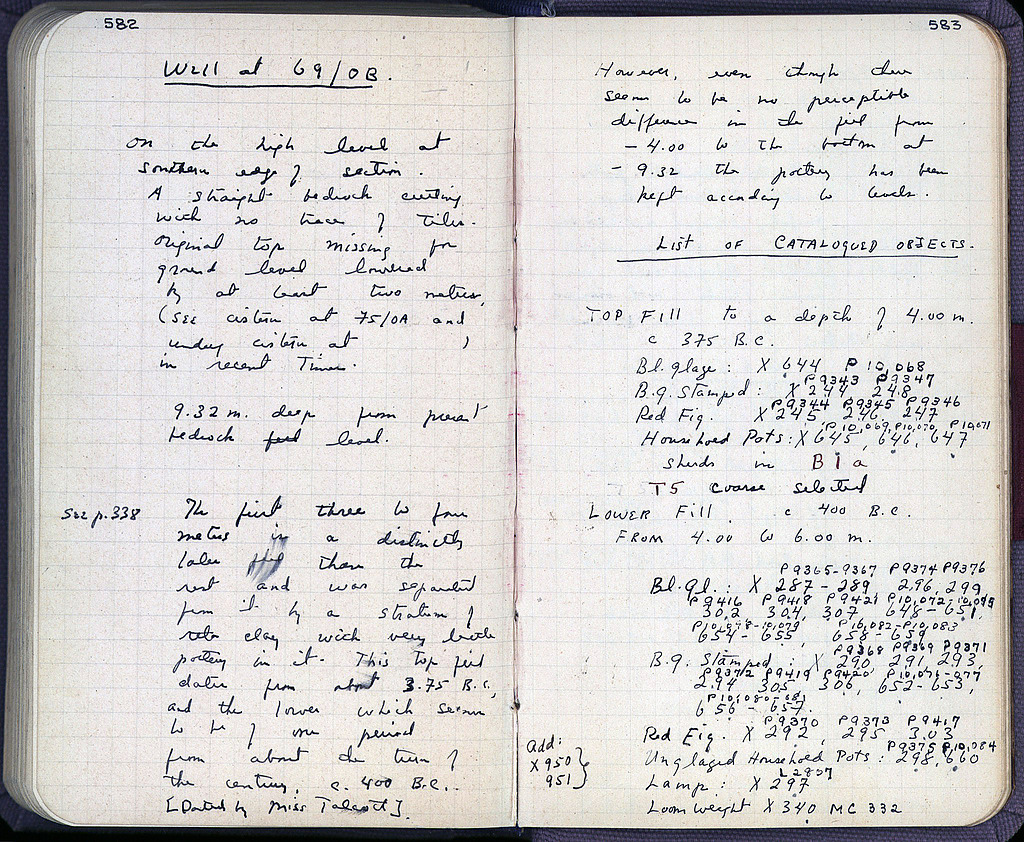 582
Well at 69/OB.
On the high level at
southern edge of section.
A straight bedrock cutting
with no trace of tiles.
Original top missing for
ground level lowered
by at least two metres,
(See cistern at 75/OA and
cistern at )
in recent Times.
9.32 m. deep from present
bedrock level.
See p.338
The first three to four
metres is a distinctly
later fill than the
rest and was separated
from it by a stratum of
clay with very little
pottery in it. This top fill
dates from about 3.75 B.C.,
and the lower which seems
to be of one period
from about the turn of
the century, c. 400 B.C..
[Dated by Miss Talcott].
583
However, even though there
seems to be no perceptible
difference in the fill from
- 4.00 to the bottom at
- 9.32 the pottery has been
kept according to levels.
LIST OF CATALOGUED OBJECTS.
TOP Fill to a depth of 4.00 m.
c 375 B.C.
Bl. glaze: X 644 P 10,068
P9343 P9347
B.g. Stamped: X 244 248
P9344 P9345 P9346
Red Fig. X 245, 246, 247
P10,069, P10,070, P10,071
Household Pots: X 645, 646, 647
sherds in B1a
T5 coarse selected
LOWER Fill c 400 B.C.
FROM 4.00 to 6.00 m.
P9365-9367 P9374 P9376
Bl. gl.: X 287-289, 296, 299
P9416 P9418 P9421 P10,072-10,075
302, 304, 307, 648-651,
P10,078-10,079 P10,082-P10,083
654-655 658-659
P9368 P9369 P9371
B.g. Stamped: X 290, 291, 293,
P9372 P9419 P9420 P10,076-077
294 305, 306, 652-653,
P10,080-081
656-657.
P9370 P9373 P9417
Red Fig. X 292, 295 303
P9375 P10,084
Unglazed Household Pots: 298, 660
L 2837
Lamp: X 297
Loomweight X 340 MC 332
Add:
X 950
951